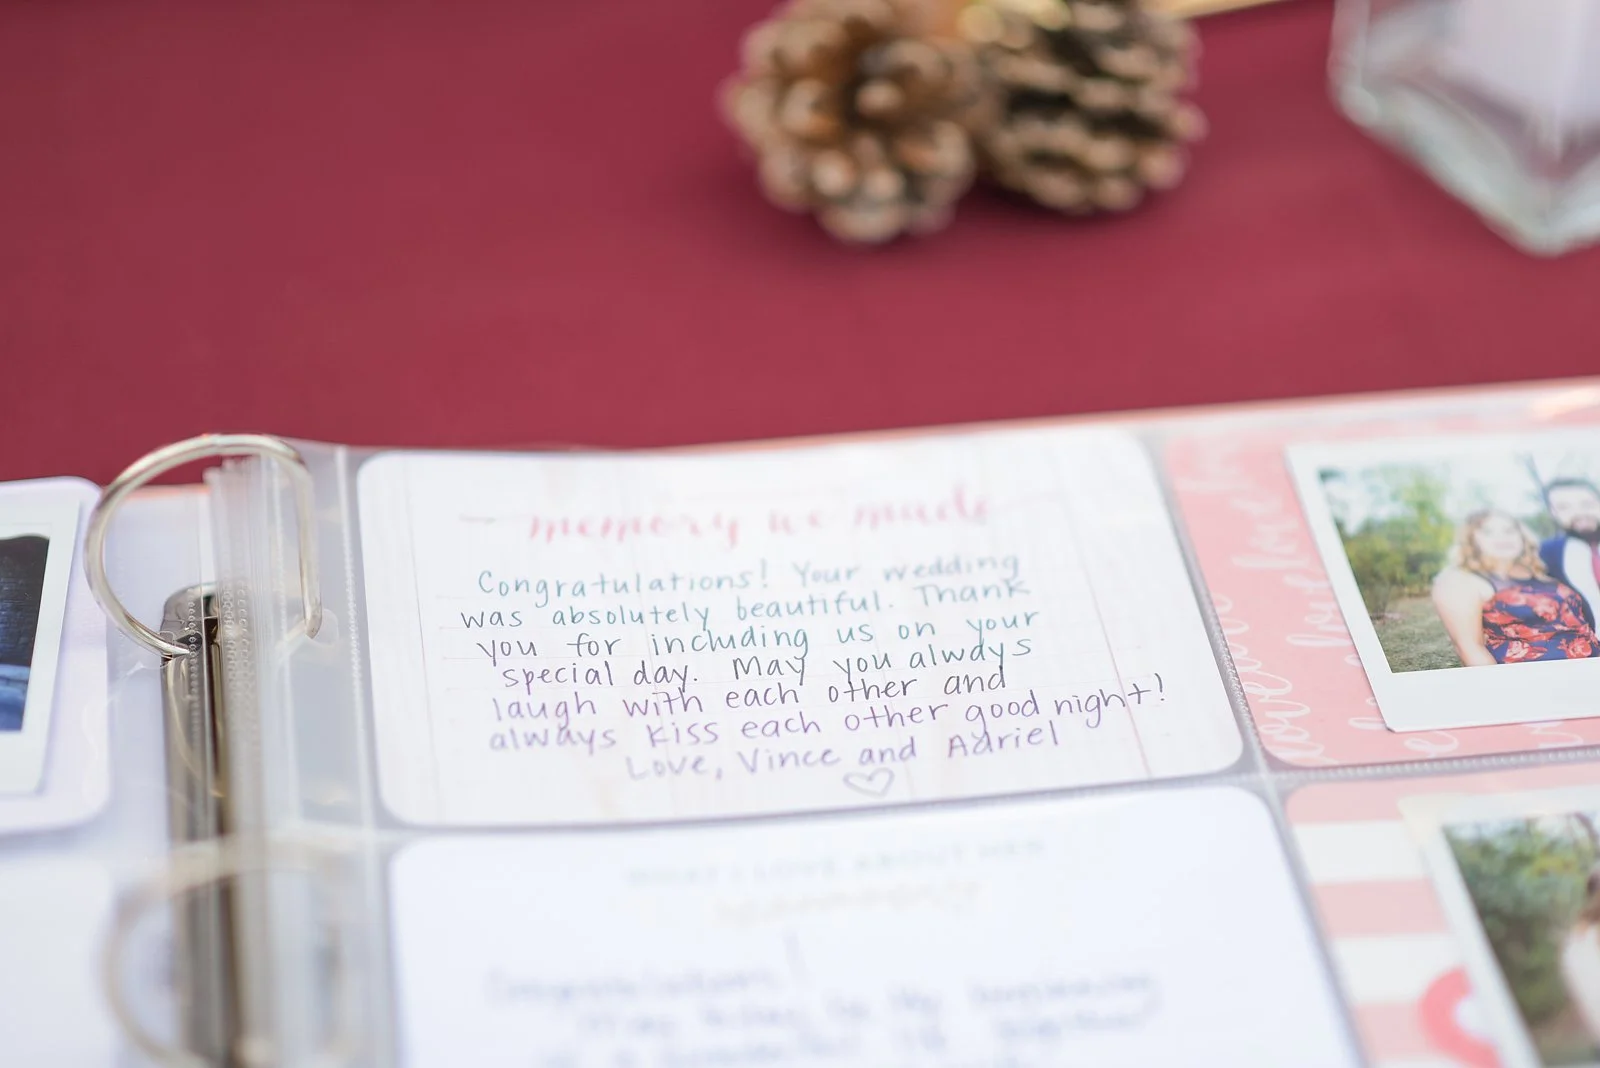 memory we made
Congratulations! Your wedding
was absolutely beautiful. Thank
you for including us on your
special day. May you always
laugh with each other and
always kiss each other good night!
Love, Vince and Adriel
WHAT I LOVE ABOUT
Congratulations!
love
love